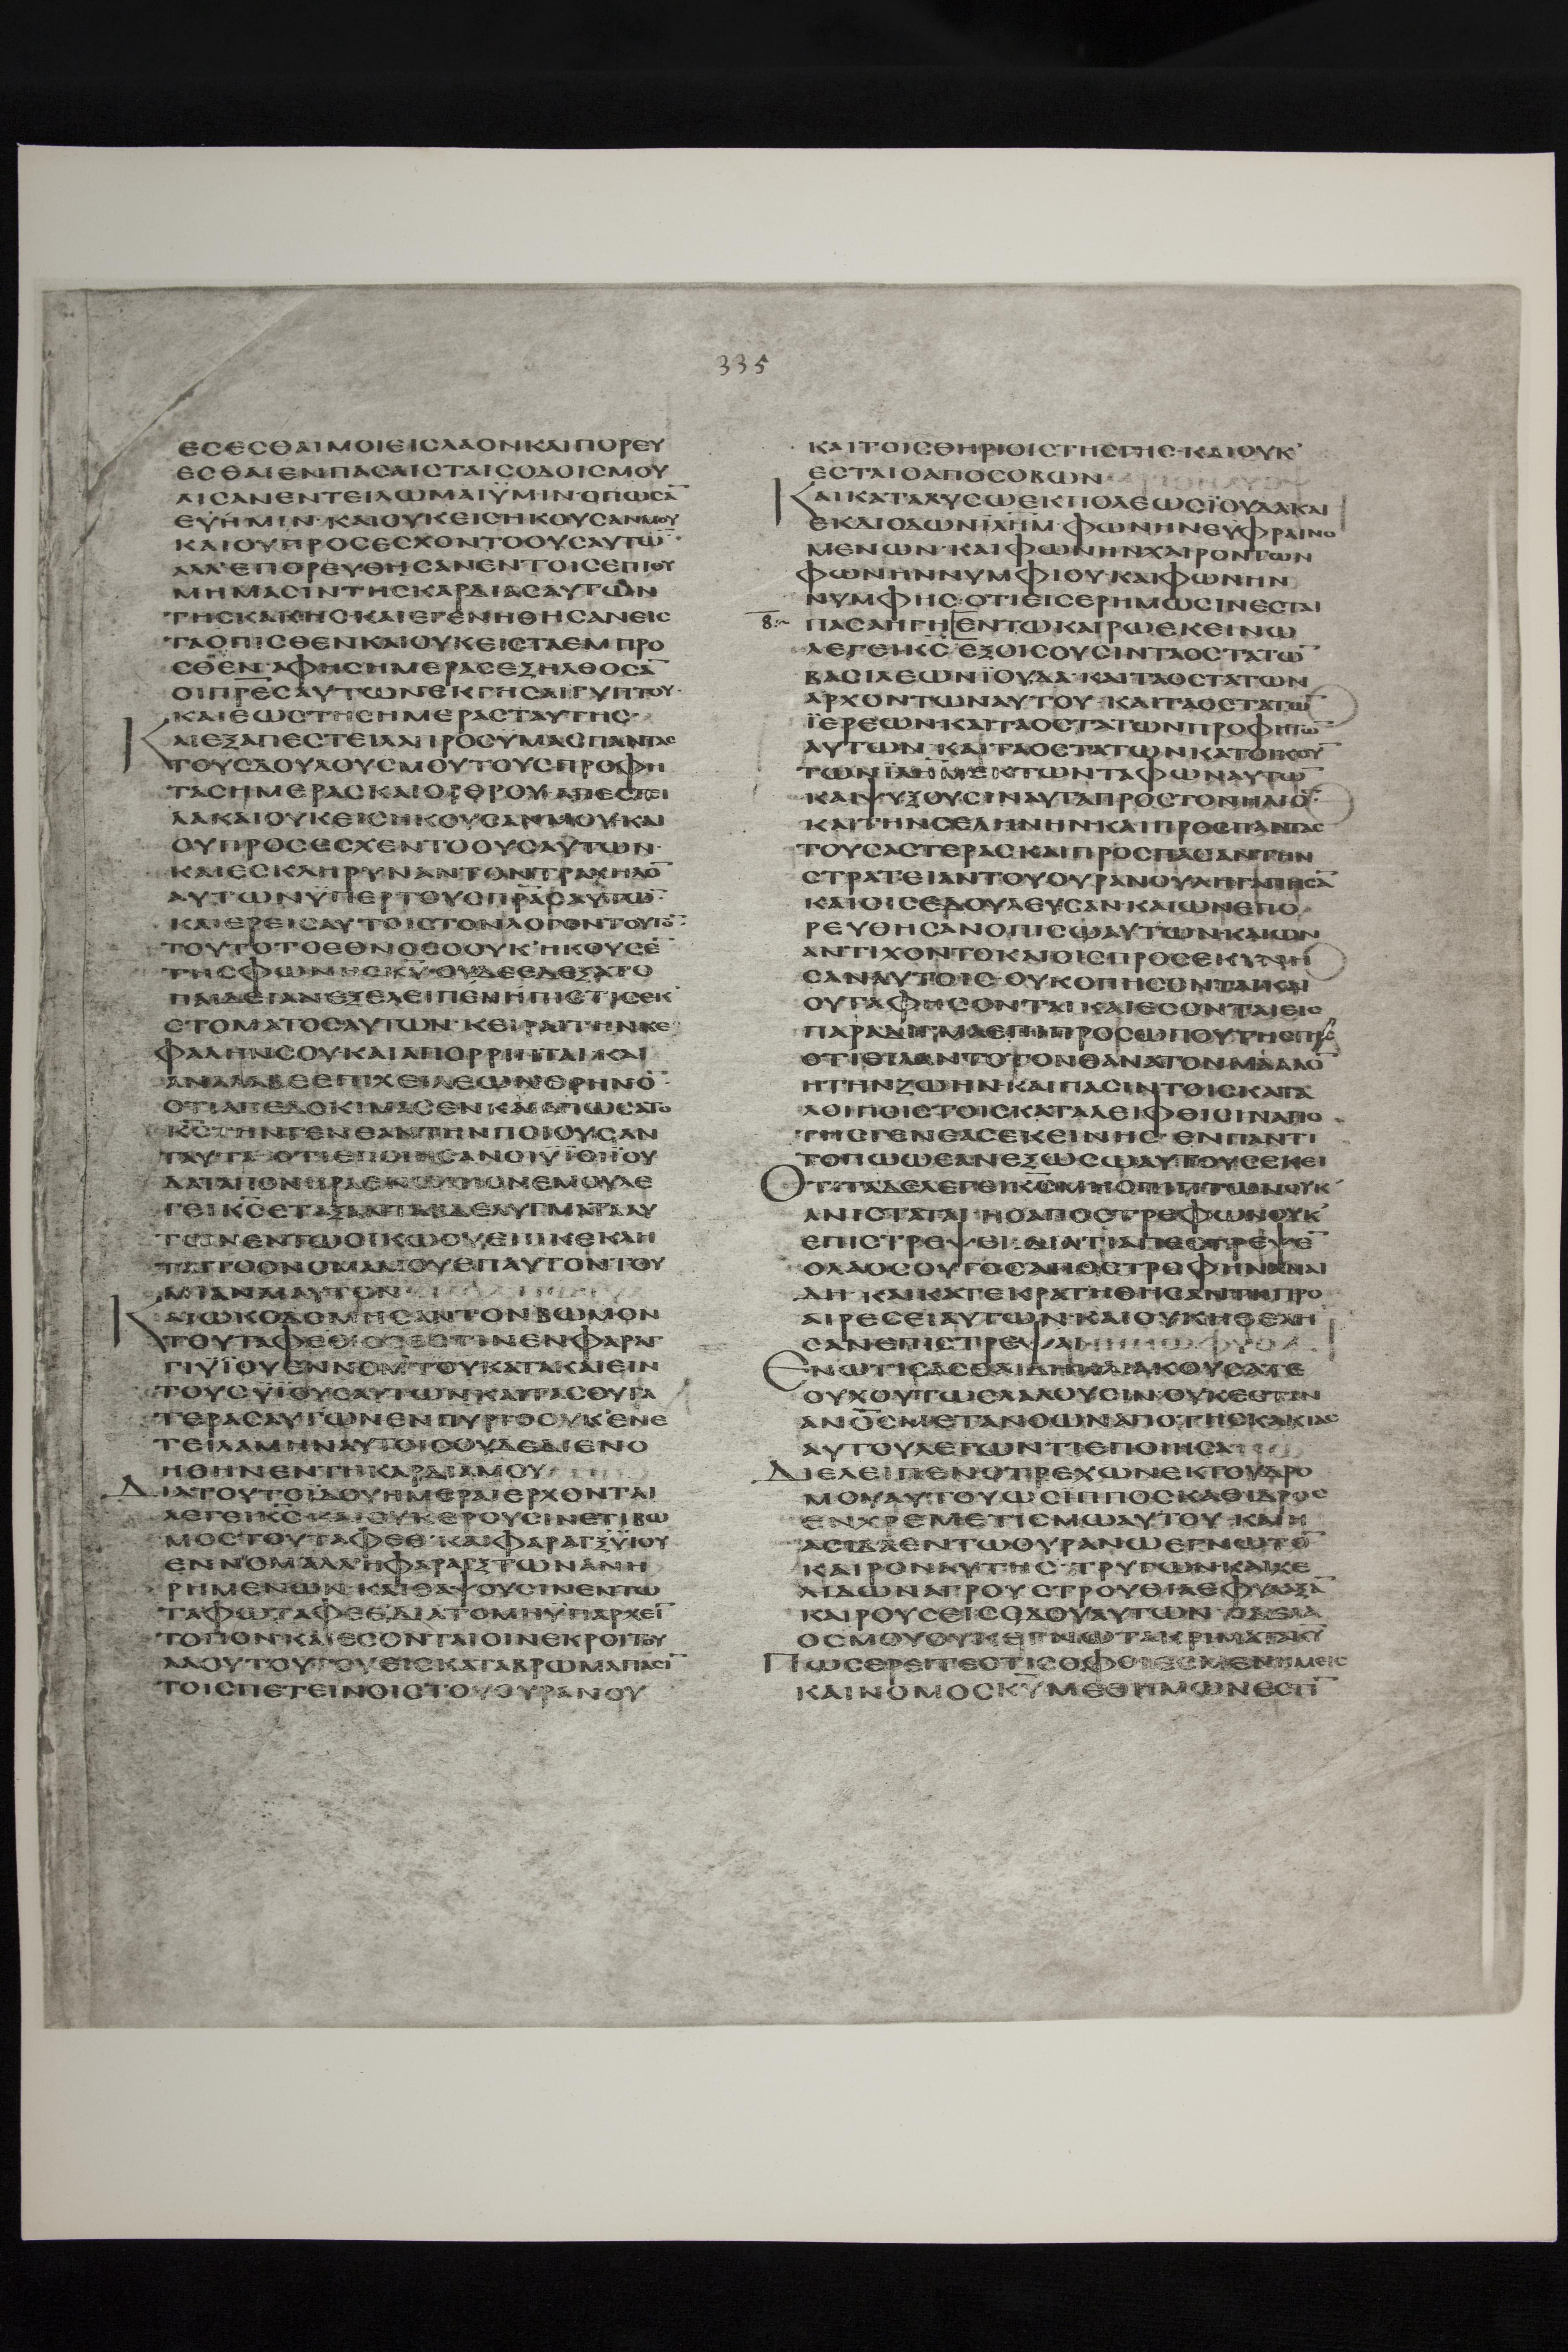 335
ΕϹΕϹΘΑΙΜΟΙΕΙϹΛΑΟΝΚΑΙΠΟΡΕΥ
ΕϹΘΑΙΕΝΠΑϹΑΙϹΤΑΙϹΟΔΟΙϹΜΟΥ
ΑΙϹΑΝΕΝΤΕΙΛΩΜΑΙΫΜΙΝ·ΟΠΩϹΑ̅
ΕΥΗΜΙΝ·ΚΑΙΟΥΚΕΙϹΗΚΟΥϹΑΝΜΟΥ
ΚΑΙΟΥΠΡΟϹΕϹΧΟΝΤΟΟΥϹΑΥΤΩ̅·
ΑΛΛ'ΕΠΟΡΕΥΘΗϹΑΝΕΝΤΟΙϹΕΠΙΘΥ
ΜΗΜΑϹΙΝΤΗϹΚΑΡΔΙΑϹΑΥΤΩΝ
ΤΗϹΚΑΚΗϹ·ΚΑΙΕΓΕΝΗΘΗϹΑΝΕΙϹ
ΤΑΟΠΙϹΘΕΝΚΑΙΟΥΚΕΙϹΤΑΕΜΠΡΟ
ϹΘΕΝ·ΑΦΗϹΗΜΕΡΑϹΕΞΗΛΘΟϹΑ̅
ΟΙΠΡ̅Ε̅Ϲ̅ΑΥΤΩΝΕΚΓΗϹΑΙΓΥΠΤΟΥ·
ΚΑΙΕΩϹΤΗϹΗΜΕΡΑϹΤΑΥΤΗϹ·
ΚΑΙΕΞΑΠΕϹΤΕΙΛΑΠΡΟϹΥΜΑϹΠΑΝΤΑϹ
ΤΟΥϹΔΟΥΛΟΥϹΜΟΥΤΟΥϹΠΡΟΦΗ
ΤΑϹΗΜΕΡΑϹΚΑΙΟΡΘΡΟΥ·ΑΠΕϹΤΕΙ
ΛΑΚΑΙΟΥΚΕΙϹΗΚΟΥϹΑΝΜΟΥΚΑΙ
ΟΥΠΡΟϹΕϹΧΕΝΤΟΟΥϹΑΥΤΩΝ·
ΚΑΙΕϹΚΛΗΡΥΝΑΝΤΟΝΤΡΑΧΗΛΟ̅
ΑΥΤΩΝΫΠΕΡΤΟΥϹΠΡ̅Α̅Ϲ̅ΑΥΤΩ̅·
ΚΑΙΕΡΕΙϹΑΥΤΟΙϹΤΟΝΛΟΓΟΝΤΟΥΤΟ̅·
ΤΟΥΤΟΤΟΕΘΝΟϹΟΟΥΚ'ΗΚΟΥϹΕ̅
ΤΗϹΦΩΝΗϹΚ̅Υ̅·ΟΥΔΕΕΔΕΞΑΤΟ
ΠΑΙΔΕΙΑΝΕΞΕΛΕΙΠΕΝΗΠΙϹΤΙϹΕΚ
ϹΤΟΜΑΤΟϹΑΥΤΩΝ·ΚΕΙΡΑΙΤΗΝΚΕ
ΦΑΛΗΝϹΟΥΚΑΙΑΠΟΡΡΙΠΤΑΙ·ΚΑΙ
ΑΝΑΛΑΒΕΕΠΙΧΕΙΛΕΩΝΘΡΗΝΟ̅·
ΟΤΙΑΠΕΔΟΚΙΜΑϹΕΝΚΑΙΑΠΩϹΑΤΟ
Κ̅Ϲ̅ΤΗΝΓΕΝΕΑΝΤΗΝΠΟΙΟΥϹΑΝ
ΤΑΥΤΑ·ΟΤΙΕΠΟΙΗϹΑΝΟΙΫΙΟΙΪΟΥ
ΔΑΤΑΠΟΝΗΡΑΕΝΩΠΙΟΝΕΜΟΥΛΕ
ΓΕΙΚ̅Ϲ̅ΕΤΑΞΑΝΤΑΒΔΕΛΥΓΜΑΤΑΑΥ
ΤΩΝΕΝΤΩΟΙΚΩΟΥΕΠΙΚΕΚΛΗ
ΤΑΙΤΟΟΝΟΜΑΜΟΥΕΠΑΥΤΟΝΤΟΥ
ΜΙΑΝΑΙΑΥΤΟΝ
ΚΑΙΩΚΟΔΟΜΗϹΑΝΤΟΝΒΩΜΟΝ
ΤΟΥΤΑΦΕΘΟϹΕϹΤΙΝΕΝΦΑΡΑΓ
ΓΙΫΙΟΥΕΝΝΟΜΤΟΥΚΑΤΑΚΑΙΕΙΝ
ΤΟΥϹΫΙΟΥϹΑΥΤΩΝΚΑΙΤΑϹΘΥΓΑ
ΤΕΡΑϹΑΥΤΩΝΕΝΠΥΡΙ·ΟΟΥΚ'ΕΝΕ
ΤΕΙΛΑΜΗΝΑΥΤΟΙϹΟΥΔΕΔΙΕΝΟ
ΗΘΗΝΕΝΤΗΚΑΡΔΙΑΜΟΥ
ΔΙΑΤΟΥΤΟΪΔΟΥΗΜΕΡΑΙΕΡΧΟΝΤΑΙ
ΛΕΓΕΙΚ̅Ϲ̅·ΚΑΙΟΥΚΕΡΟΥϹΙΝΕΤΙΒΩ
ΜΟϹΤΟΥΤΑΦΕΘ·ΚΑΙΦΑΡΑΓΞΫΙΟΥ
ΕΝΝΟΜΑΛΛ'ΗΦΑΡΑΓΞΤΩΝΑΝΗ
ΡΗΜΕΝΩΝ·ΚΑΙΘΑΨΟΥϹΙΝΕΝΤΩ
ΤΑΦΩΤΑΦΕΘΔΙΑΤΟΜΗΫΠΑΡΧΕΙ̅
ΤΟΠΟΝ·ΚΑΙΕϹΟΝΤΑΙΟΙΝΕΚΡΟΙΤΟΥ
ΛΑΟΥΤΟΥΤΟΥΕΙϹΚΑΤΑΒΡΩΜΑΠΑϹΙ̅
ΤΟΙϹΠΕΤΕΙΝΟΙϹΤΟΥΟΥΡΑΝΟΥ
ΚΑΙΤΟΙϹΘΗΡΙΟΙϹΤΗϹΓΗϹ·ΚΑΙΟΥΚ'
ΕϹΤΑΙΟΑΠΟϹΟΒΩΝ·
ΚΑΙΚΑΤΑΛΥϹΩΕΚΠΟΛΕΩϹΪΟΥΔΑΚΑΙ
ΕΚΔΙΟΔΩΝΪ̅Λ̅Η̅Μ̅·ΦΩΝΗΝΕΥΦΡΑΙΝΟ
ΜΕΝΩΝ·ΚΑΙΦΩΝΗΝΧΑΙΡΟΝΤΩΝ
ΦΩΝΗΝΝΥΜΦΙΟΥΚΑΙΦΩΝΗΝ
ΝΥΜΦΗϹ·ΟΤΙΕΙϹΕΡΗΜΩϹΙΝΕϹΤΑΙ
8:~ ΠΑϹΑΗΓΗ[ΕΝΤΩΚΑΙΡΩΕΚΕΙΝΩ
ΛΕΓΕΙΚ̅Ϲ̅ΕΞΟΙϹΟΥϹΙΝΤΑΟϹΤΑΤΩ̅
ΒΑϹΙΛΕΩΝΪΟΥΔΑ·ΚΑΙΤΑΟϹΤΑΤΩΝ
ΑΡΧΟΝΤΩΝΑΥΤΟΥ·ΚΑΙΤΑΟϹΤΑΤΩ̅
ΪΕΡΕΩΝ·ΚΑΙΤΑΟϹΤΑΤΩΝΠΡΟΦΗΤΩ̅
ΑΥΤΩΝ·ΚΑΙΤΑΟϹΤΑΤΩΝΚΑΤΟΙΚΟΥ
ΤΩΝΪ̅Λ̅Η̅Μ̅ΕΚΤΩΝΤΑΦΩΝΑΥΤΩ̅
ΚΑΙΨΥΞΟΥϹΙΝΑΥΤΑΠΡΟϹΤΟΝΗΛΙΟ̅·
ΚΑΙΤΗΝϹΕΛΗΝΗΝ·ΚΑΙΠΡΟϹΠΑΝΤΑϹ
ΤΟΥϹΑϹΤΕΡΑϹΚΑΙΠΡΟϹΠΑϹΑΝΤΗΝ
ϹΤΡΑΤΕΙΑΝΤΟΥΟΥΡΑΝΟΥΑΗΓΑΠΗϹΑ̅
ΚΑΙΟΙϹΕΔΟΥΛΕΥϹΑΝ·ΚΑΙΩΝΕΠΟ
ΡΕΥΘΗϹΑΝΟΠΙϹΩΑΥΤΩΝΚΑΙΩΝ
ΑΝΤΙΧΟΝΤΟΚΑΙΟΙϹΠΡΟϹΕΚΥΝΗ
ϹΑΝΑΥΤΟΙϹ·ΟΥΚΟΠΗϹΟΝΤΑΙΚΑΙ
ΟΥΤΑΦΗϹΟΝΤΑΙ·ΚΑΙΕϹΟΝΤΑΙΕΙϹ
ΠΑΡΑΔΙΓΜΑΕΠΙΠΡΟϹΩΠΟΥΤΗϹΓΗϹ
ΟΤΙΘΙΛΑΝΤΟΤΟΝΘΑΝΑΤΟΝΜΑΛΛΟ̅
ΗΤΗΝΖΩΗΝ·ΚΑΙΠΑϹΙΝΤΟΙϹΚΑΤΑ
ΛΟΙΠΟΙϹΤΟΙϹΚΑΤΑΛΕΙΦΘΙϹΙΝΑΠΟ
ΤΗϹΓΕΝΕΑϹΕΚΕΙΝΗϹ·ΕΝΠΑΝΤΙ
ΤΟΠΩΩΕΑΝΕΞΩϹΩΑΥΤΟΥϹΕΚΕΙ
ΟΤΙΤΑΔΕΛΕΓΕΙΚ̅Ϲ̅ΜΗΟΠΙΠΤΩΝΟΥΚ'
ΑΝΙϹΤΑΤΑΙ·ΗΟΑΠΟϹΤΡΕΦΩΝΟΥΚ'
ΕΠΙϹΤΡΕΨΕΙ·ΔΙΑΤΙΑΠΕϹΤΡΕΨΕ̅
ΟΛΑΟϹΟΥΤΟϹΑΠΟϹΤΡΟΦΗΝΑΝΑΙ
ΔΗ·ΚΑΙΚΑΤΕΚΡΑΤΗΘΗϹΑΝΤΗΠΡΟ
ΑΙΡΕϹΕΙΑΥΤΩΝΚΑΙΟΥΚΗΘΕΛΗ
ϹΑΝΕΠΙϹΤΡΕΨΑΙ
ΕΝΩΤΙϹΑϹΘΑΙΔΗΚΑΙΑΚΟΥϹΑΤΕ
ΟΥΧΟΥΤΩϹΛΑΛΟΥϹΙΝ·ΟΥΚΕϹΤΙΝ
ΑΝ̅Ο̅Ϲ̅ΜΕΤΑΝΟΩΝΑΠΟΤΗϹΚΑΚΙΑϹ
ΑΥΤΟΥΛΕΓΩΝΤΙΕΠΟΙΗϹΑ
ΔΙΕΛΕΙΠΕΝΟΤΡΕΧΩΝΕΚΤΟΥΔΡΟ
ΜΟΥΑΥΤΟΥΩϹΪΠΠΟϹΚΑΘΙΔΡΟϹ
ΕΝΧΡΕΜΕΤΙϹΜΩΑΥΤΟΥ·ΚΑΙΗ
ΑϹΙΔΑΕΝΤΩΟΥΡΑΝΩΕΓΝΩΤΟ̅
ΚΑΙΡΟΝΑΥΤΗϹ·ΤΡΥΓΩΝΚΑΙΧΕ
ΛΙΔΩΝΑΓΡΟΥϹΤΡΟΥΘΙΑΕΦΥΛΑΞΑ̅
ΚΑΙΡΟΥϹΕΙϹΟΔΟΥΑΥΤΩΝ·ΟΔΕΛΑ
ΟϹΜΟΥΟΥΚΕΓΝΩΤΑΚΡΙΜΑΤΑΚ̅Υ̅
ΠΩϹΕΡΕΙΤΕΟΤΙϹΟΦΟΙΕϹΜΕΝΗΜΕΙϹ
ΚΑΙΝΟΜΟϹΚ̅Υ̅ΜΕΘΗΜΩΝΕϹΤΙ̅